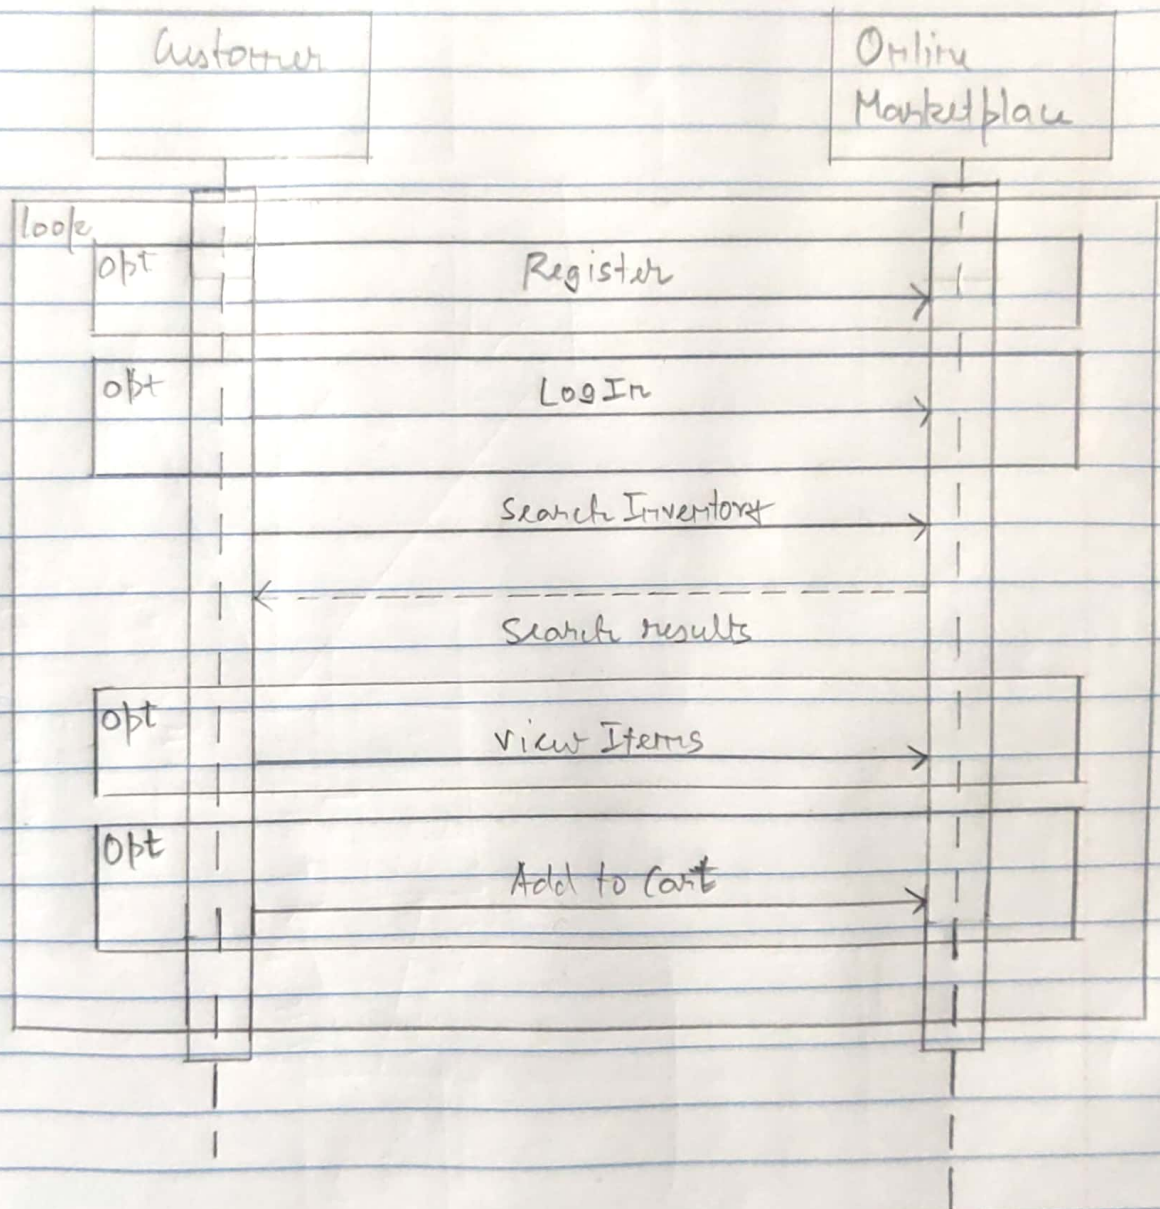 Customer
Online
Marketplace
loop
opt
Register
opt
LogIn
Search Inventory
Search results
opt
View Items
opt
Add to Cart